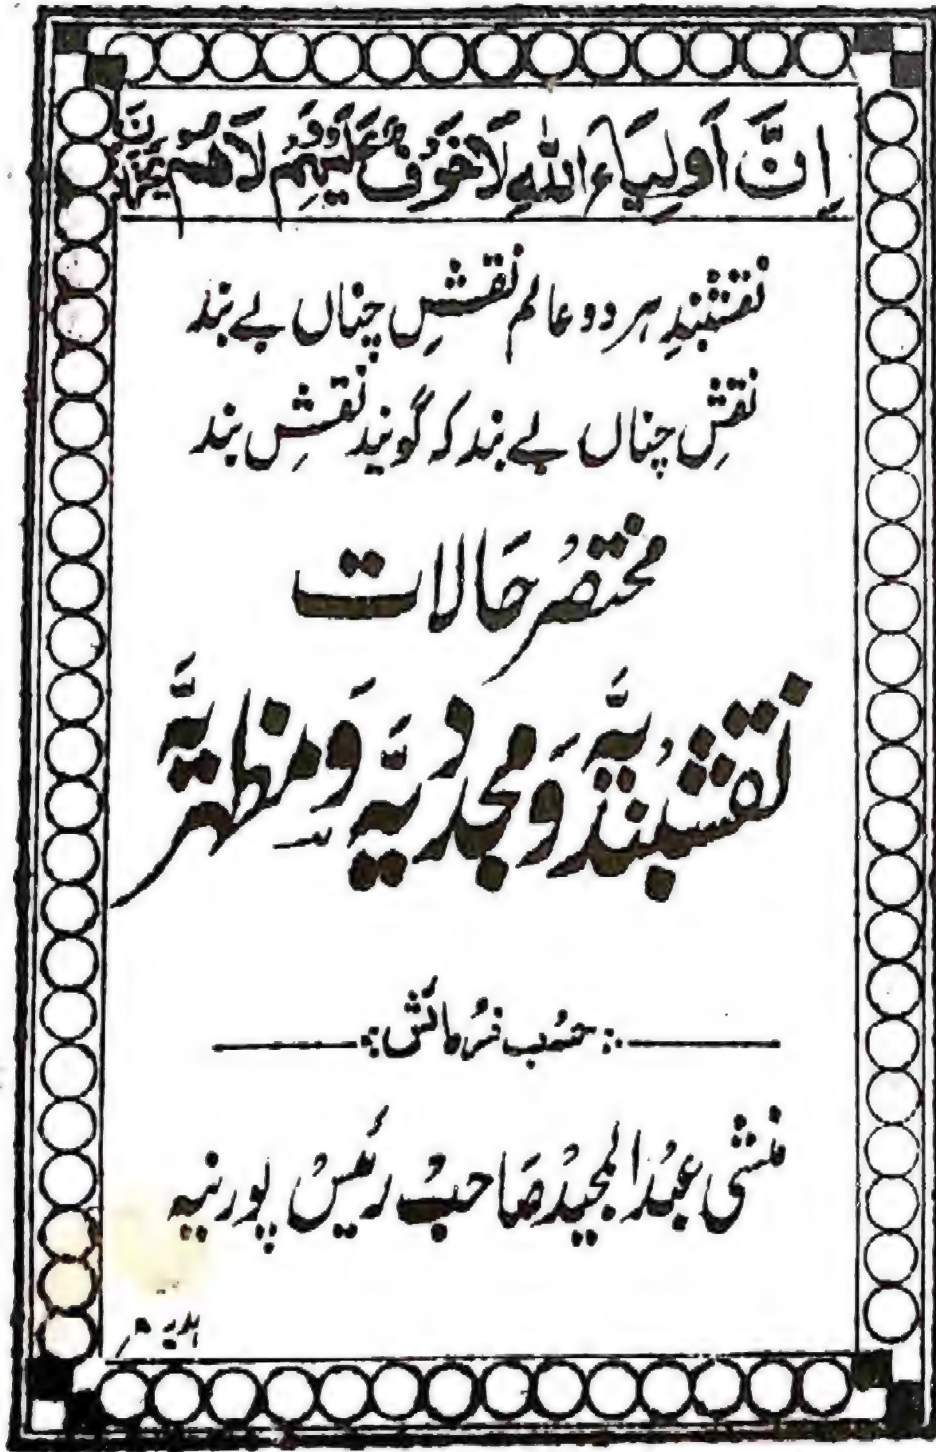 اِنَّ اَوْلِيَاءَ اللّٰهِ لَا خَوْفٌ عَلَيْهِمْ وَ لَا هُمْ يَحْزَنُوْنَ
نقشبندِ ہر دو عالم نقشِ چناں بے بند
نقشِ چناں بے بند کہ گویند نقشِ بند
مختصر حالات
نقشبندیہ و مجددیہ و مظہریہ
حسب فرمائش
منشی عبد المجید صاحب رئیس پورنیہ